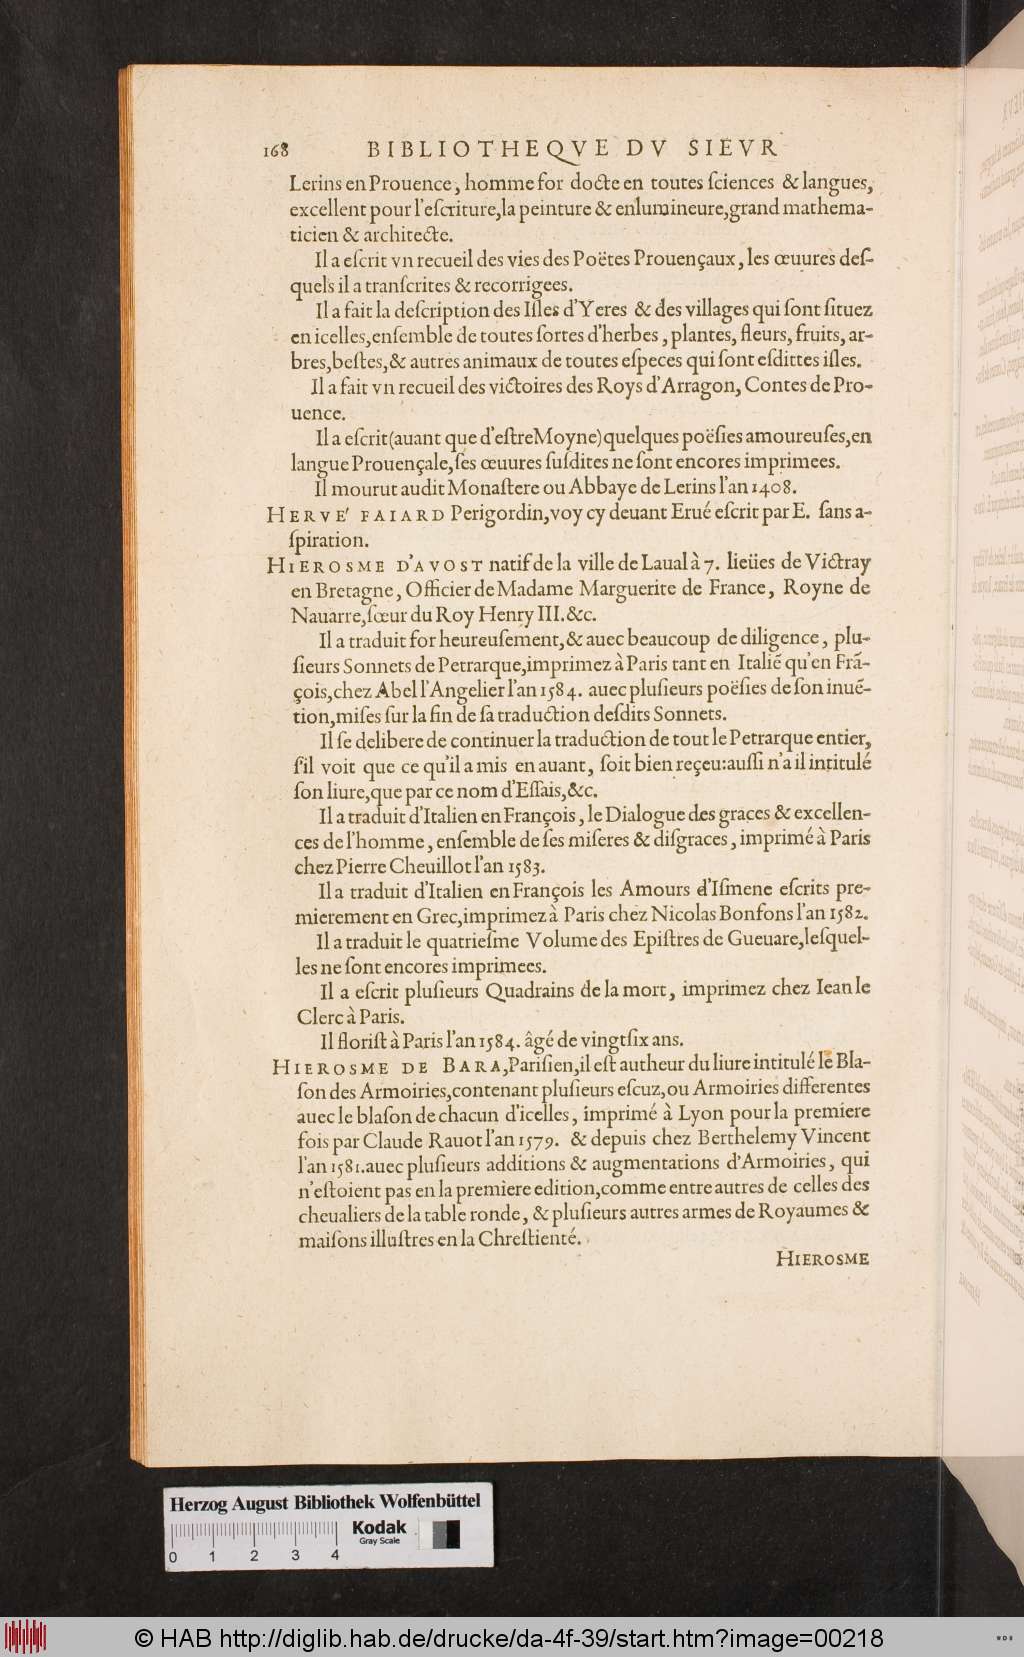 168 BIBLIOTHEQVE DV SIEVR
Lerins en Prouence, homme for docte en toutes ſciences & langues,
excellent pour l'eſcriture, la peinture & enlumineure, grand mathema-
ticien & architecte.
Il a eſcrit vn recueil des vies des Poëtes Prouençaux, les œuures deſ-
quels il a tranſcrites & recorrigees.
Il a fait la deſcription des Iſles d'Yeres & des villages qui ſont ſituez
en icelles, enſemble de toutes ſortes d'herbes, plantes, fleurs, fruits, ar-
bres, beſtes, & autres animaux de toutes eſpeces qui ſont eſdittes iſles.
Il a fait vn recueil des victoires des Roys d'Arragon, Contes de Pro-
uence.
Il a eſcrit (auant que d'eſtre Moyne) quelques poëſies amoureuſes, en
langue Prouençale, ſes œuures ſuſdites ne ſont encores imprimees.
Il mourut audit Monaſtere ou Abbaye de Lerins l'an 1408.
HERVE' FAIARD Perigordin, voy cy deuant Erué eſcrit par E. ſans a-
ſpiration.
HIEROSME D'AVOST natif de la ville de Laual à 7. lieües de Victray
en Bretagne, Officier de Madame Marguerite de France, Royne de
Nauarre, ſœur du Roy Henry III. &c.
Il a traduit for heureuſement, & auec beaucoup de diligence, plu-
ſieurs Sonnets de Petrarque, imprimez à Paris tant en Italiẽ qu'en Frã-
çois, chez Abel l'Angelier l'an 1584. auec pluſieurs poëſies de ſon inuẽ-
tion, miſes ſur la fin de ſa traduction deſdits Sonnets.
Il ſe delibere de continuer la traduction de tout le Petrarque entier,
ſ'il voit que ce qu'il a mis en auant, ſoit bien reçeu: auſſi n'a il intitulé
ſon liure, que par ce nom d'Eſſais, &c.
Il a traduit d'Italien en François, le Dialogue des graces & excellen-
ces de l'homme, enſemble de ſes miſeres & diſgraces, imprimé à Paris
chez Pierre Cheuillot l'an 1583.
Il a traduit d'Italien en François les Amours d'Iſmene eſcrits pre-
mierement en Grec, imprimez à Paris chez Nicolas Bonfons l'an 1582.
Il a traduit le quatrieſme Volume des Epiſtres de Gueuare, leſquel-
les ne ſont encores imprimees.
Il a eſcrit pluſieurs Quadrains de la mort, imprimez chez Iean le
Clerc à Paris.
Il floriſt à Paris l'an 1584. âgé de vingtſix ans.
HIEROSME DE BARA, Pariſien, il eſt autheur du liure intitulé le Bla-
ſon des Armoiries, contenant pluſieurs eſcuz, ou Armoiries differentes
auec le blaſon de chacun d'icelles, imprimé à Lyon pour la premiere
fois par Claude Rauot l'an 1579. & depuis chez Berthelemy Vincent
l'an 1581. auec pluſieurs additions & augmentations d'Armoiries, qui
n'eſtoient pas en la premiere edition, comme entre autres de celles des
cheualiers de la table ronde, & pluſieurs autres armes de Royaumes &
maiſons illuſtres en la Chreſtienté.
HIEROSME
Herzog August Bibliothek Wolfenbüttel
Kodak
Gray Scale
0 1 2 3 4
© HAB http://diglib.hab.de/drucke/da-4f-39/start.htm?image=00218